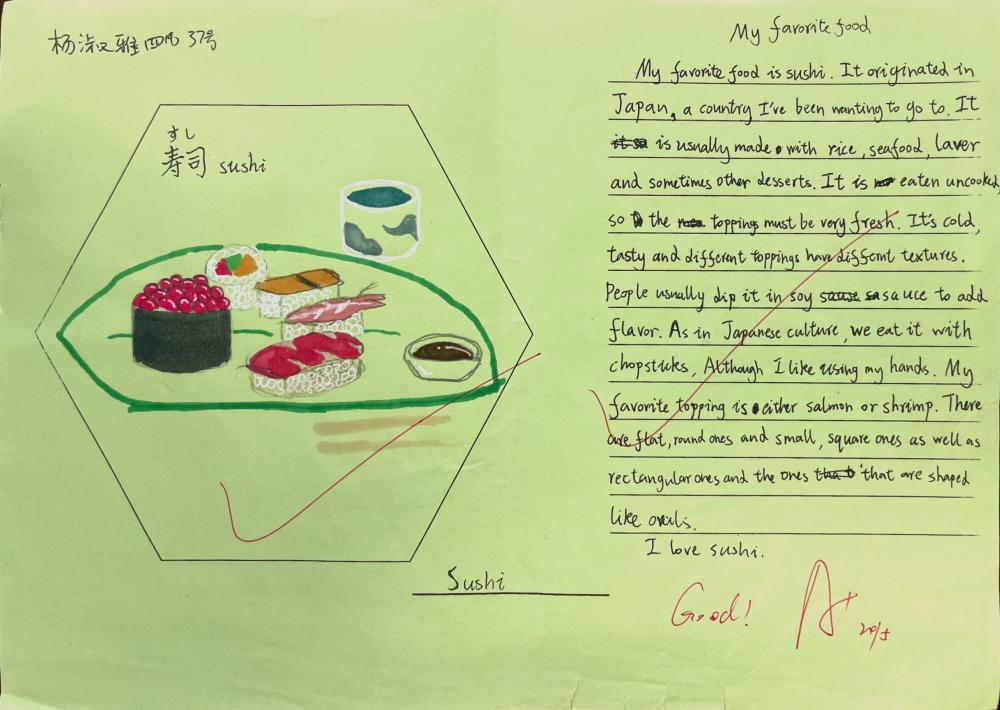 杨淑雅 四 37号
すし
寿司 sushi
Sushi
My favorite food
My favorite food is sushi. It originated in
Japan, a country I've been wanting to go to. It
is usually made with rice, seafood, laver
and sometimes other desserts. It is eaten uncooked,
so the toppings must be very fresh. It's cold,
tasty and different toppings have differnt textures.
People usually dip it in soy sauce to add
flavor. As in Japanese culture, we eat it with
chopsticks, Although I like using my hands. My
favorite topping is either salmon or shrimp. There
are flat, round ones and small, square ones as well as
rectangular ones and the ones that are shaped
like ovals.
I love sushi.
Good! A+